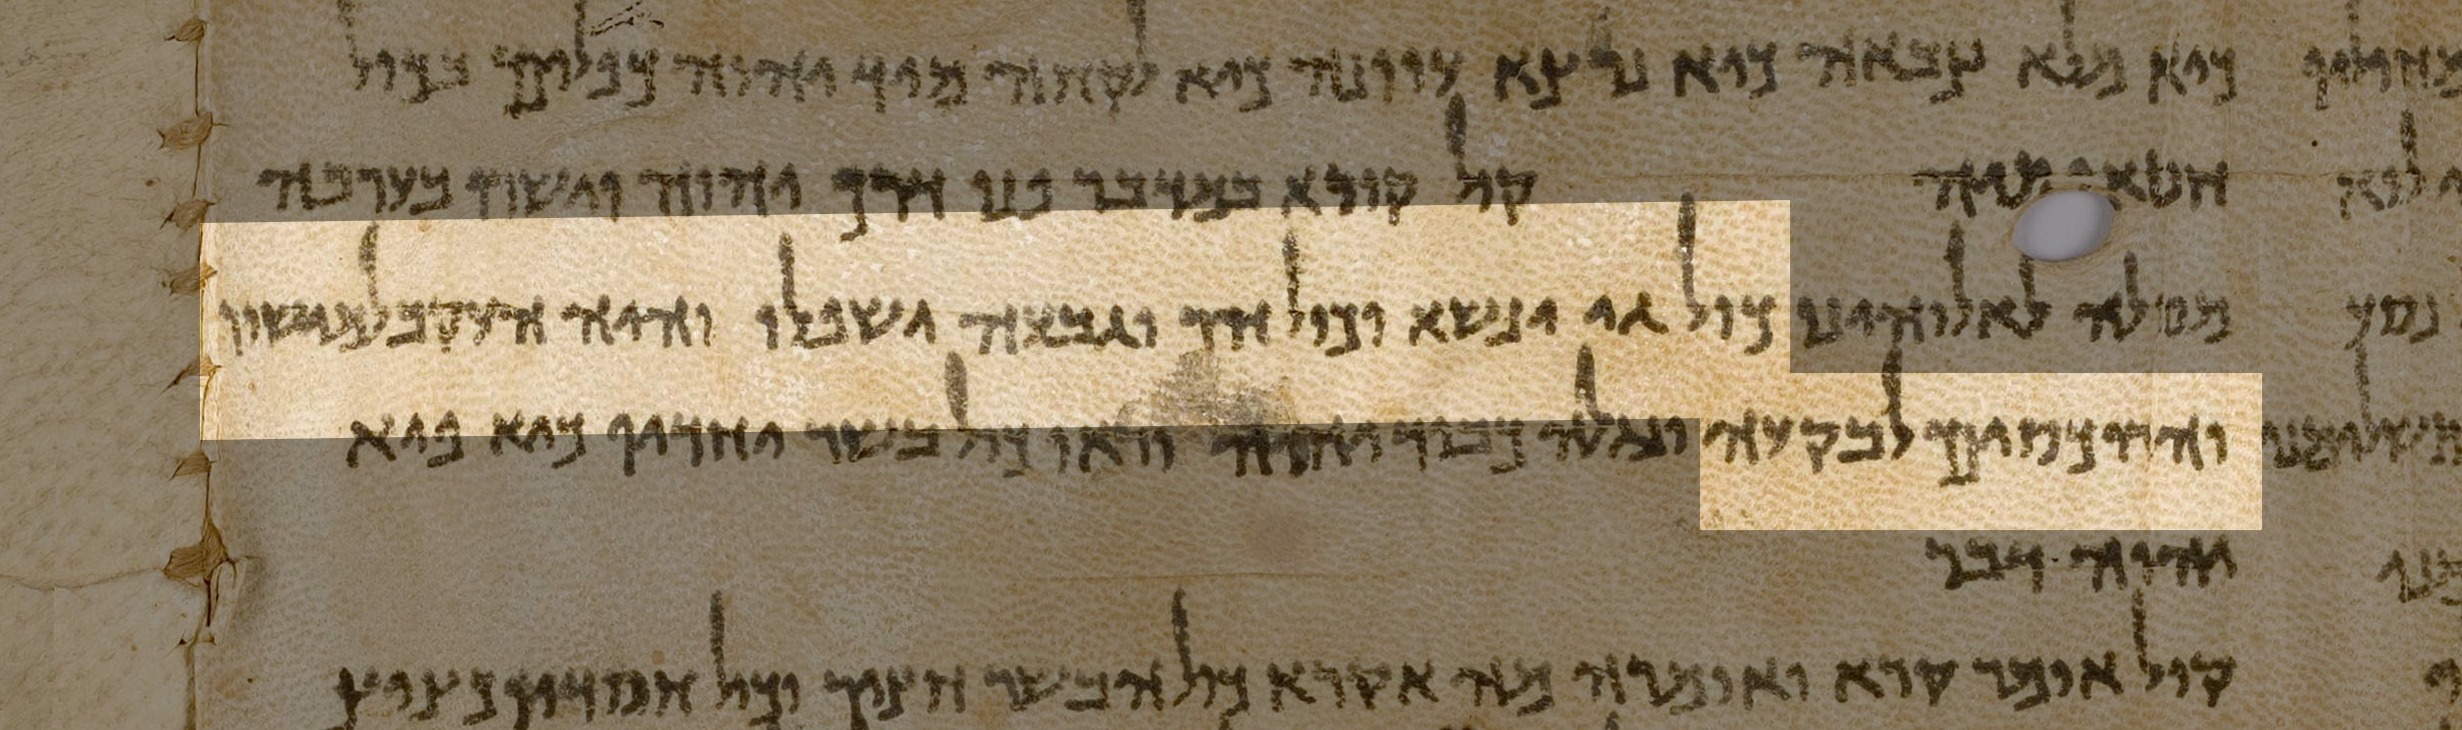 כיא מלא צבאה כיא נרצא עוונה כיא לקחה מיד יהוה כפלים בכול
חטאותיה קול קורא במדבר פנו דרך יהוה וישרו בערבה
מסלה לאלוהינו כול גי ינשא וכול הר וגבעה ישפלו והיה העקב למישור
והרכסים לבקעה ונגלה כבוד יהוה וראו כול בשר יחדיו כיא פיא
יהוה דבר
קול אומר קרא ואומרה מה אקרא כול הבשר חציר וכול חסדיו כציץ